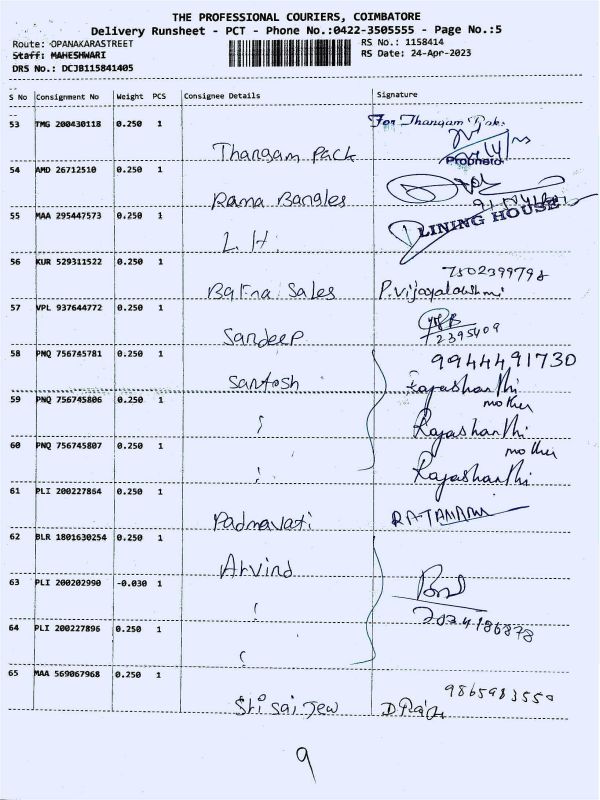 THE PROFESSIONAL COURIERS, COIMBATORE
Delivery Runsheet - PCT - Phone No.:0422-3505555 - Page No.:5
Route: OPANAKARASTREET
RS No.: 1158414
Staff: MAHESHWARI
RS Date: 24-Apr-2023
DRS No.: DCJB115841405
S No Consignment No Weight PCS Consignee Details Signature
53 TMG 200430118 0.250 1 For Thangam
Thangam Pack
54 AMD 26712510 0.250 1
Rama Bangles
55 MAA 295447573 0.250 1 LINING HOUSE
L.H.
56 KUR 529311522 0.250 1 7502399798
Sales P.Vijayalakshmi
57 VPL 937644772 0.250 1
Sandeep 2395409
58 PNQ 756745781 0.250 1 9944491730
Santosh Rajashanthi
mother
59 PNQ 756745806 0.250 1 Rajashanthi
mother
60 PNQ 756745807 0.250 1 Rajashanthi
61 PLI 200227864 0.250 1
Padmavati
62 BLR 1801630254 0.250 1
Arvind
63 PLI 200202990 -0.030 1
64 PLI 200227896 0.250 1
65 MAA 569067968 0.250 1
Sri Sai Jew
9